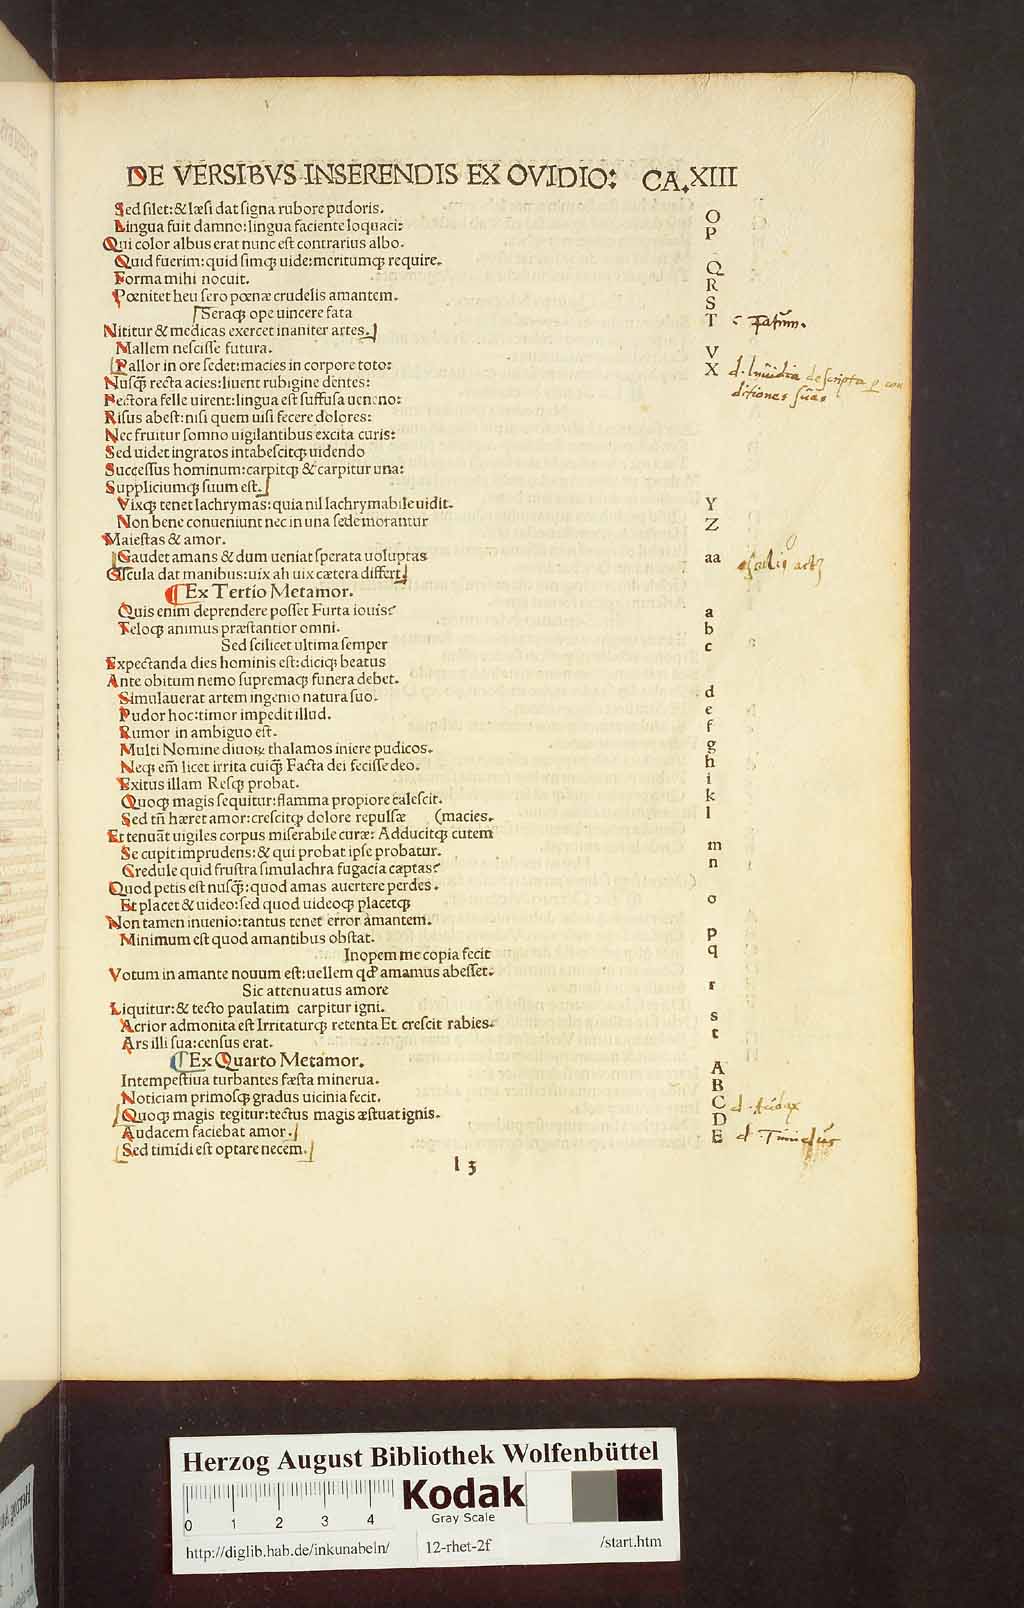 DE VERSIBVS INSERENDIS EX OVIDIO: CA.XIII
Sed silet:& læsi dat signa rubore pudoris. O
Lingua fuit damno:lingua faciente loquaci: P
Qui color albus erat nunc est contrarius albo.
Quid fuerim:quid simqꝫ uide:meritumqꝫ require. Q
Forma mihi nocuit. R
Pœnitet heu sero pœnæ crudelis amantem. S
Seraqꝫ ope uincere fata T
Nititur & medicas exercet inaniter artes.
Mallem nescisse futura. V
Pallor in ore sedet:macies in corpore toto: X
Nusq̃ recta acies:liuent rubigine dentes:
Pectora felle uirent:lingua est suffusa ueneno:
Risus abest:nisi quem uisi fecere dolores:
Nec fruitur somno uigilantibus excita curis:
Sed uidet ingratos intabescitqꝫ uidendo
Successus hominum:carpitqꝫ & carpitur una:
Suppliciumqꝫ suum est.
Vixqꝫ tenet lachrymas:quia nil lachrymabile uidit. Y
Non bene conueniunt nec in una sede morantur Z
Maiestas & amor.
Gaudet amans & dum ueniat sperata uoluptas aa
Oscula dat manibus:uix ah uix cætera differt.
Ex Tertio Metamor.
Quis enim deprendere posset Furta iouis? a
Teloqꝫ animus præstantior omni. b
Sed scilicet ultima semper c
Expectanda dies hominis est:diciqꝫ beatus
Ante obitum nemo supremaqꝫ funera debet.
Simulauerat artem ingenio natura suo. d
Pudor hoc:timor impedit illud. e
Rumor in ambiguo est. f
Multi Nomine diuoꝝ thalamos iniere pudicos. g
Neqꝫ em̃ licet irrita cuiq̃ Facta dei fecisse deo. h
Exitus illam Resqꝫ probat. i
Quoqꝫ magis sequitur:flamma propiore calescit. k
Sed tñ hæret amor:crescitqꝫ dolore repulsæ (macies. l
Et tenuãt uigiles corpus miserabile curæ: Adducitqꝫ cutem
Se cupit imprudens:& qui probat ipse probatur. m
Credule quid frustra simulachra fugacia captas? n
Quod petis est nusq̃:quod amas auertere perdes.
Et placet & uideo:sed quod uideoqꝫ placetqꝫ o
Non tamen inuenio:tantus tenet error amantem.
Minimum est quod amantibus obstat. p
Inopem me copia fecit q
Votum in amante nouum est:uellem qđ amamus abesset.
Sic attenuatus amore r
Liquitur:& tecto paulatim carpitur igni.
Acrior admonita est Irritaturqꝫ retenta Et crescit rabies. s
Ars illi sua:census erat. t
Ex Quarto Metamor.
Intempestiua turbantes fæsta minerua. A
Noticiam primosqꝫ gradus uicinia fecit. B
Quoqꝫ magis tegitur:tectus magis æstuat ignis. C
Audacem faciebat amor. D
Sed timidi est optare necem. E
l 3
Fatũm.
d. Inũidia descripta p con
ditiones suas
d. Audax
d. Timidus
Herzog August Bibliothek Wolfenbüttel
0 1 2 3 4
Kodak
Gray Scale
http://diglib.hab.de/inkunabeln/ 12-rhet-2f /start.htm